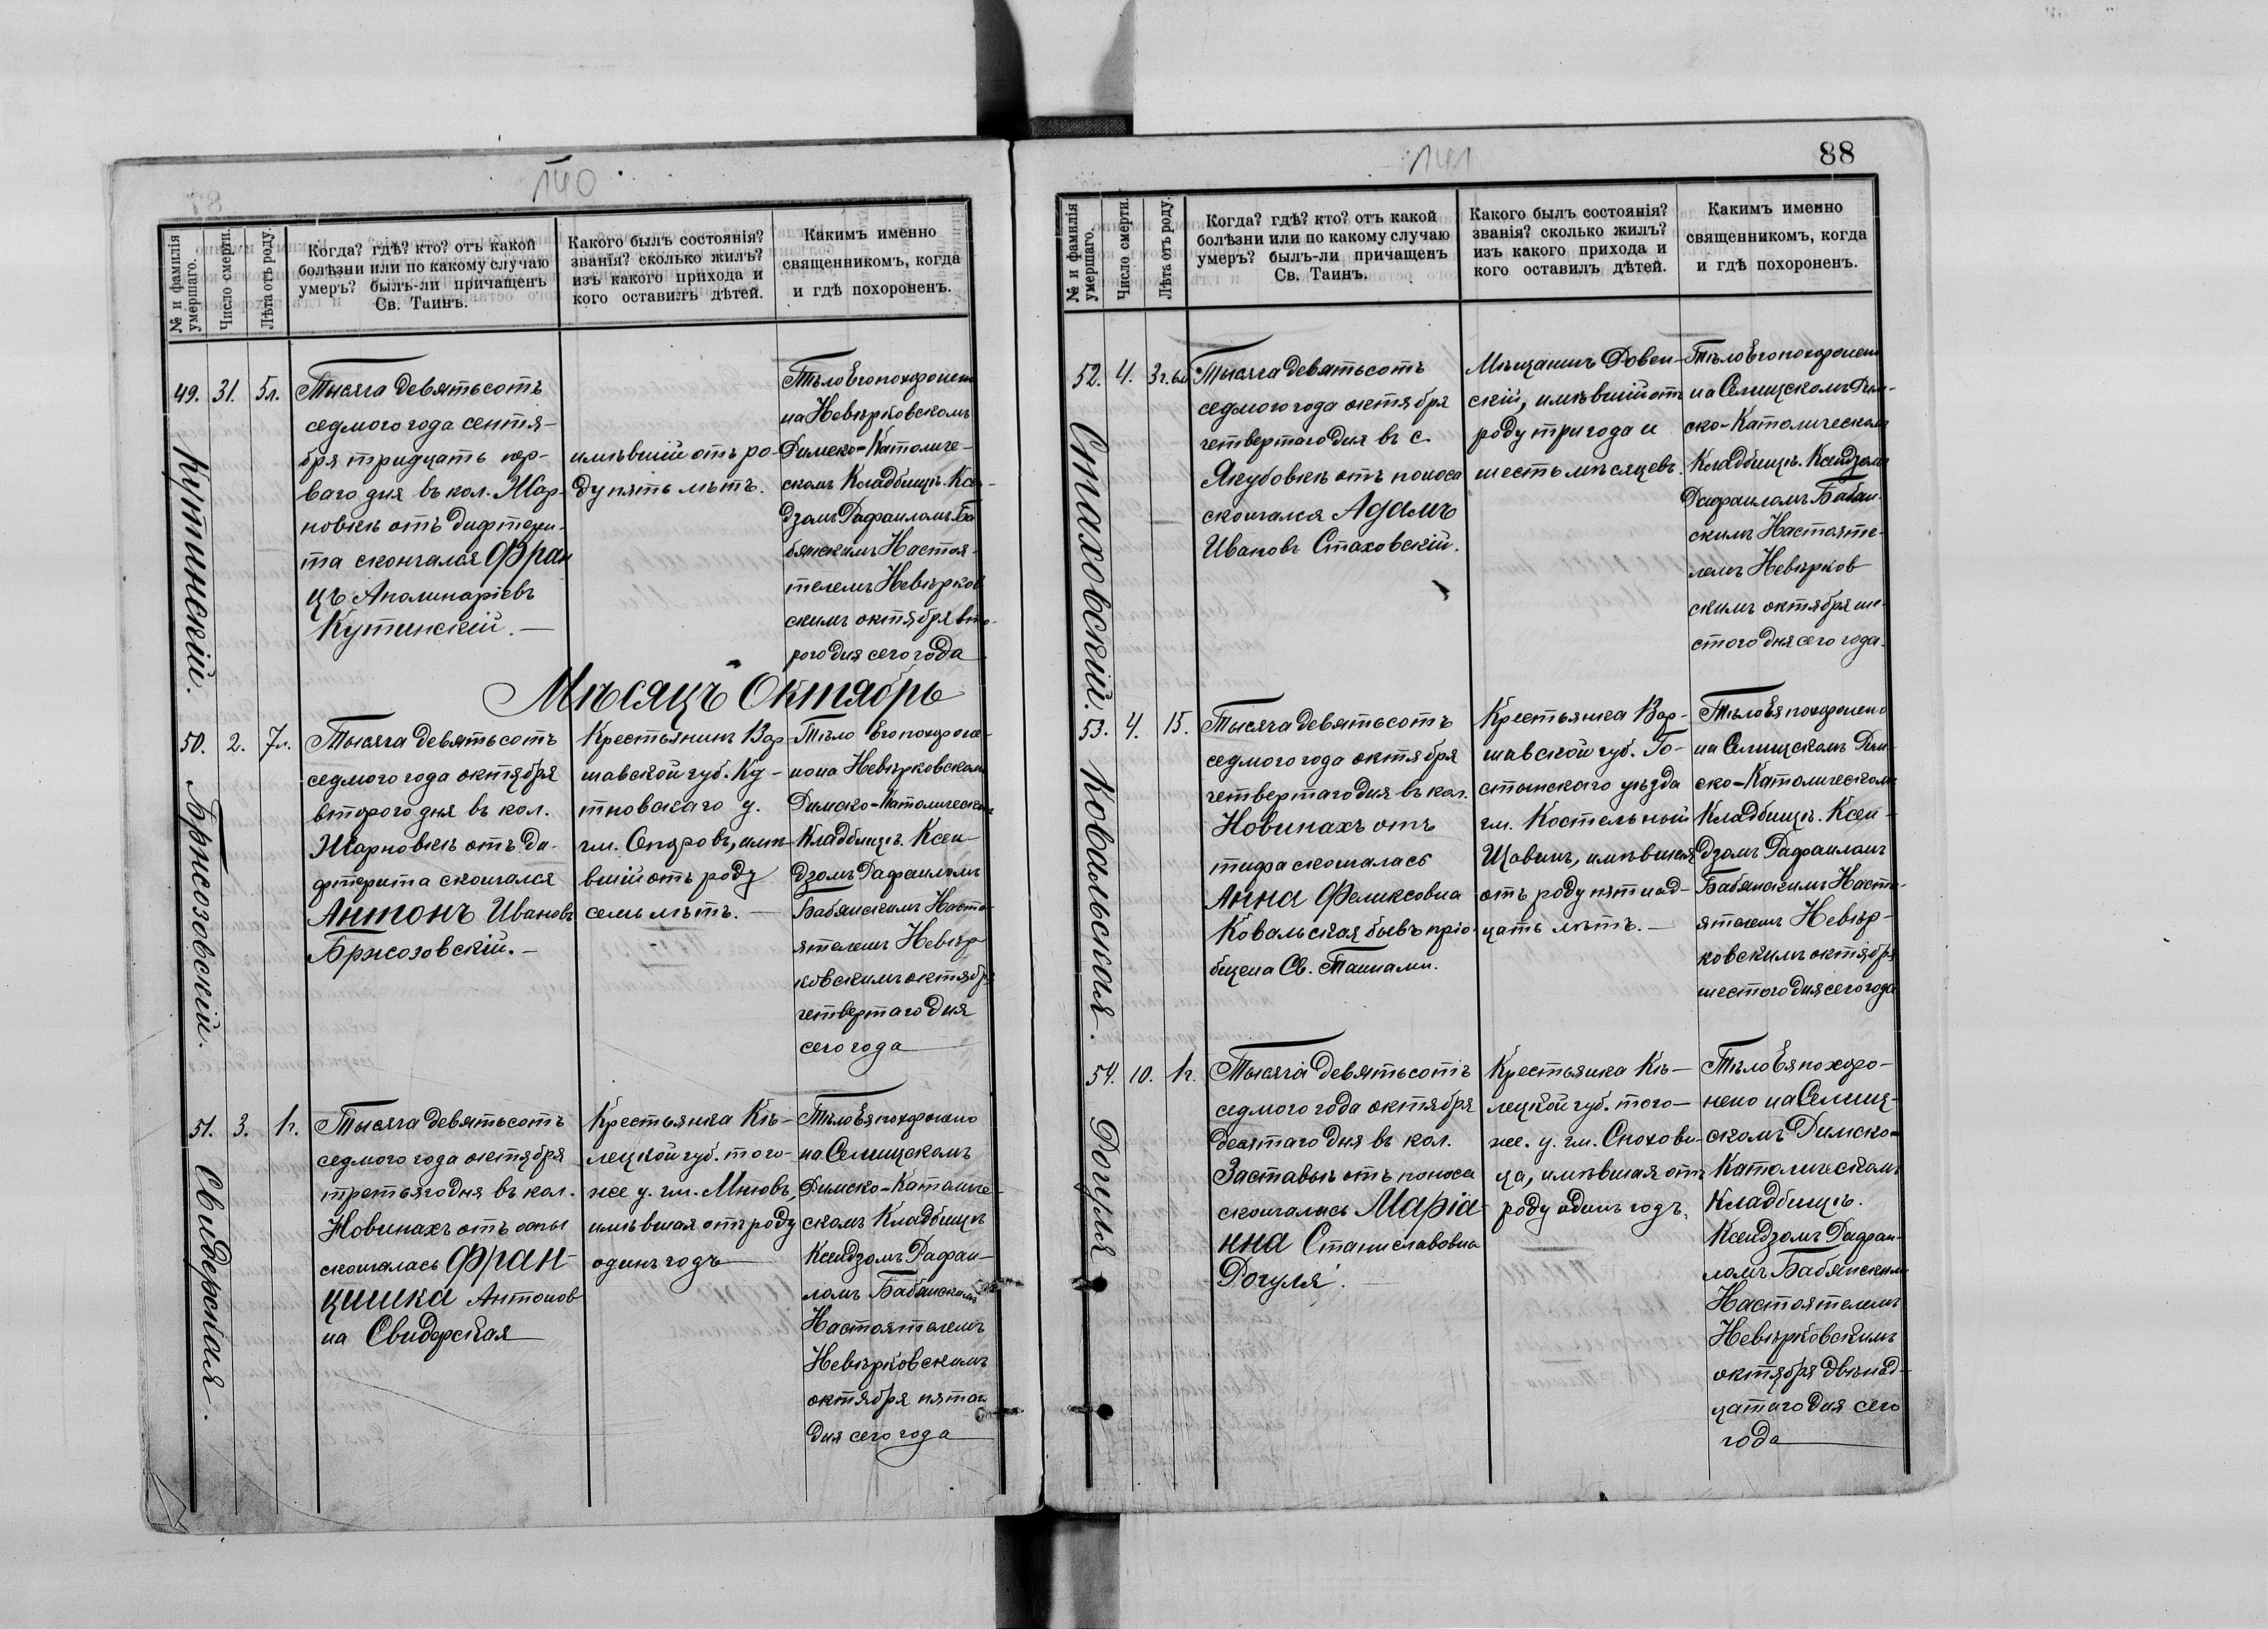 140
№ и фамилія умершаго.
Число смерти.
Лѣта отъ роду.
Когда? гдѣ? кто? отъ какой
болѣзни или по какому случаю
умеръ? былъ-ли причащенъ
Св. Таинъ.
Какого былъ состоянія?
званія? сколько жилъ?
изъ какого прихода и
кого оставилъ дѣтей.
Какимъ именно
священникомъ, когда
и гдѣ похороненъ.
49. Кутинскій.
31.
5л.
Тысяча девятьсотъ
седмого года сентя-
бря тридцать пер-
ваго дня въ кол. Жар-
новкѣ отъ дифтери-
та скончался Фран
цъ Аполинаріевъ
Кутинскій.—
имѣвшій отъ ро-
ду пять лѣтъ.
Тѣло Его похоронено
на Невѣрковскомъ
Римско-Католиче-
скомъ Кладбищѣ. Ксен-
дзомъ Рафаиломъ Ба
бянскимъ Настоя-
телемъ Невѣрков
скимъ октября вто-
рого дня сего года
Мѣсяцъ Октябрь
50. Бржозовскій.
2.
7л.
Тысяча девятьсотъ
седмого года октября
второго дня въ кол.
Жарновкѣ отъ ди-
фтерита скончался
Антонъ Ивановъ
Бржозовскій.—
Крестьянинъ Вар-
шавской губ. Ку-
тновскаго у.
гм. Опоровъ, имѣ-
вшій отъ роду
семь лѣтъ.—
Тѣло Его похороне-
но на Невѣрковскомъ
Римско-Католическомъ
Кладбищѣ. Ксен-
дзомъ Рафаиломъ
Бабянскимъ Насто-
ятелемъ Невѣр-
ковскимъ октября
четвертаго дня
сего года
51. Свидерская.
3.
1г.
Тысяча девятьсотъ
седмого года октября
третьяго дня въ кол.
Новинахъ отъ оспы
скончалась Фран-
цишка Антонов
на Свидерская
Крестьянка Кѣ-
лецкой губ. того-
же у. гм. Мніовъ,
имѣвшая отъ роду
одинъ годъ
Тѣло Ея похоронено
на Селищскомъ
Римско-Католиче-
скомъ Кладбищѣ
Ксендзомъ Рафаи-
ломъ Бабянскимъ
Настоятелемъ
Невѣрковскимъ
октября пятаго
дня сего года
141
88
№ и фамилія умершаго.
Число смерти.
Лѣта отъ роду.
Когда? гдѣ? кто? отъ какой
болѣзни или по какому случаю
умеръ? былъ-ли причащенъ
Св. Таинъ.
Какого былъ состоянія?
званія? сколько жилъ?
изъ какого прихода и
кого оставилъ дѣтей.
Какимъ именно
священникомъ, когда
и гдѣ похороненъ.
52. Стаховскій.
4.
3г. 6м
Тысяча девятьсотъ
седмого года октября
четвертаго дня въ с.
Якубовкѣ отъ поноса
скончался Адамъ
Ивановъ Стаховскій.
Мѣщанинъ Ровен-
скій, имѣвшій отъ
роду три года и
шесть мѣсяцевъ.
Тѣло Его похоронено
на Селищскомъ Рим-
ско-Католическомъ
Кладбищѣ. Ксендзомъ
Рафаиломъ Бабян-
скимъ Настояте-
лемъ Невѣрков
скимъ октября ше-
стого дня сего года.
53. Ковальская.
4.
15.
Тысяча девятьсотъ
седмого года октября
четвертаго дня въ кол.
Новинахъ отъ
тифа скончалась
Анна Феликсовна
Ковальская бывъ пріо-
бщена Св. Таинами.
Крестьянка Вар-
шавской губ. Го-
стынскаго уѣзда
гм. Костельный
Щавинъ, имѣвшая
отъ роду пятнад-
цать лѣтъ.—
Тѣло Ея похоронено
на Селищскомъ Рим-
ско-Католическомъ
Кладбищѣ. Ксен-
дзомъ Рафаиломъ
Бабянскимъ Насто-
ятелемъ Невѣр-
ковскимъ октября
шестого дня сего года
54. Рогуля
10.
1г.
Тысяча девятьсотъ
седмого года октября
десятаго дня въ кол.
Заставьи отъ поноса
скончалась Маріа-
нна Станиславовна
Рогуля.—
Крестьянка Кѣ-
лецкой губ. того-
же. у. гм. Снохови-
ца, имѣвшая отъ
роду одинъ годъ.
Тѣло Ея похоро-
нено на Селищ-
скомъ Римско-
Католическомъ
Кладбищѣ.
Ксендзомъ Рафаи-
ломъ Бабянскимъ
Настоятелемъ
Невѣрковскимъ
октября двѣнад-
цатаго дня сего
года